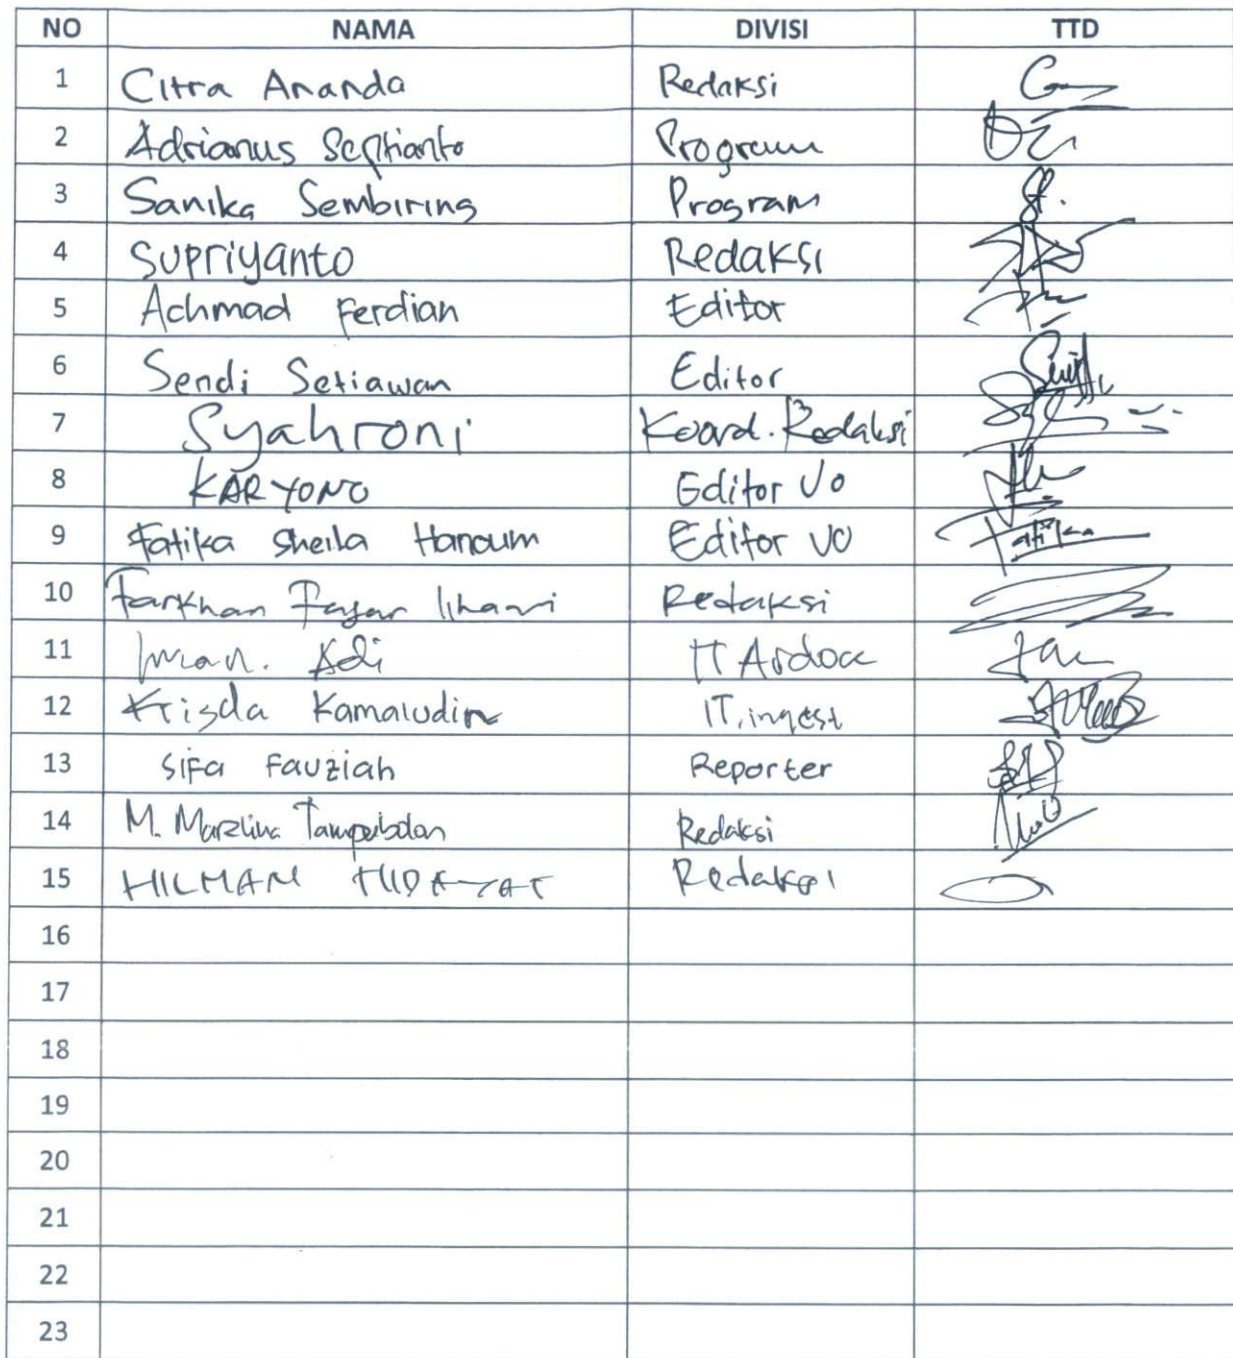 NO NAMA DIVISI TTD
1 Citra Ananda Redaksi
2 Adrianus Septianto Program
3 Sanika Sembiring Program
4 Supriyanto Redaksi
5 Achmad Ferdian Editor
6 Sendi Setiawan Editor
7 Syahroni Koord. Redaksi
8 KARYONO Editor VO
9 Fatika Sheila Hanoum Editor VO Fatika
10 Farkhan Fajar Ilhami Redaksi
11 Iman. Adi IT
12 Krisda Kamaludin IT, ingest
13 Sifa Fauziah Reporter
14 M. Marzlina Tampubolon Redaksi
15 HILMAN HIDAYAT Redaksi
16
17
18
19
20
21
22
23